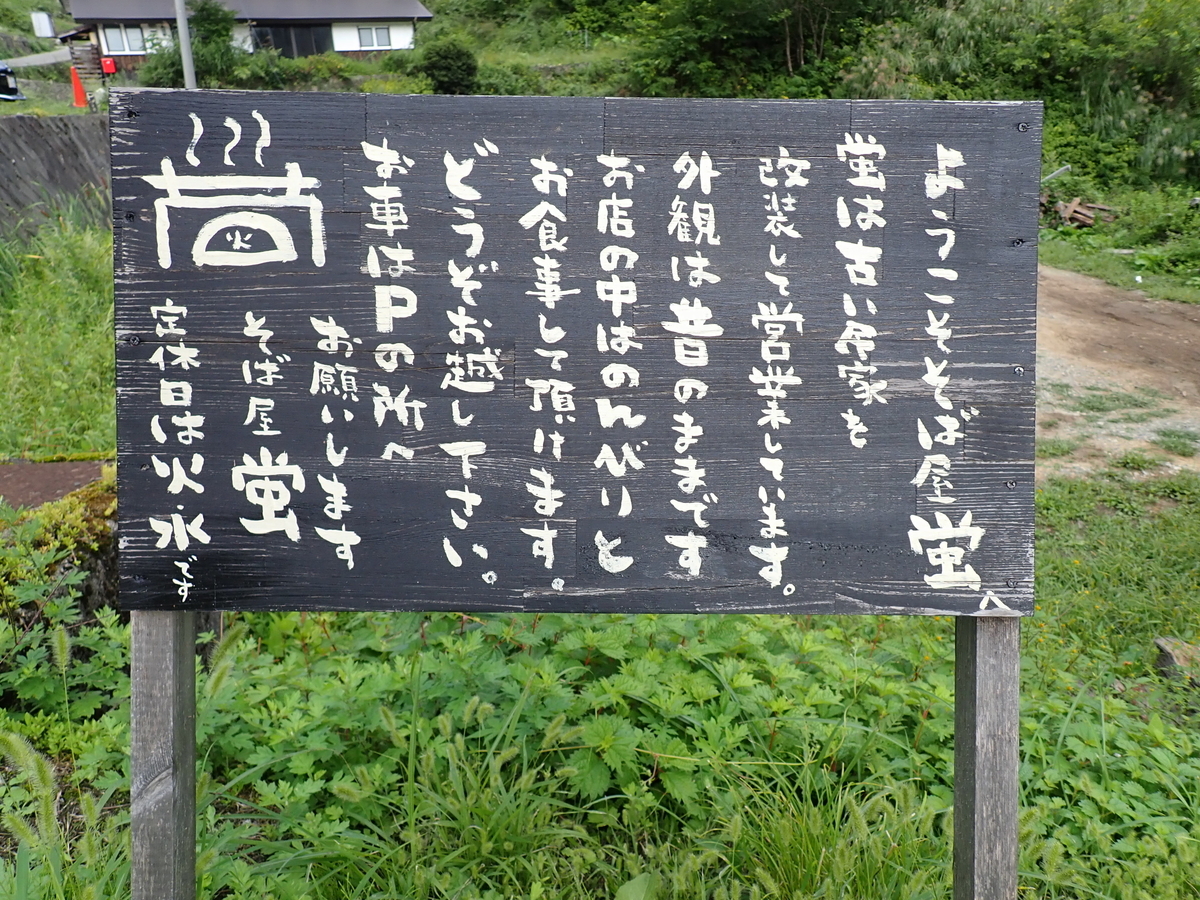 ようこそそば屋 蛍へ
蛍は古い居家を
改装して営業しています。
外観は昔のままです
お店の中はのんびりと
お食事して頂けます。
どうぞお越し下さい。
お車はPの所へ
お願いします
そば屋 蛍
火
定休日は火・水です